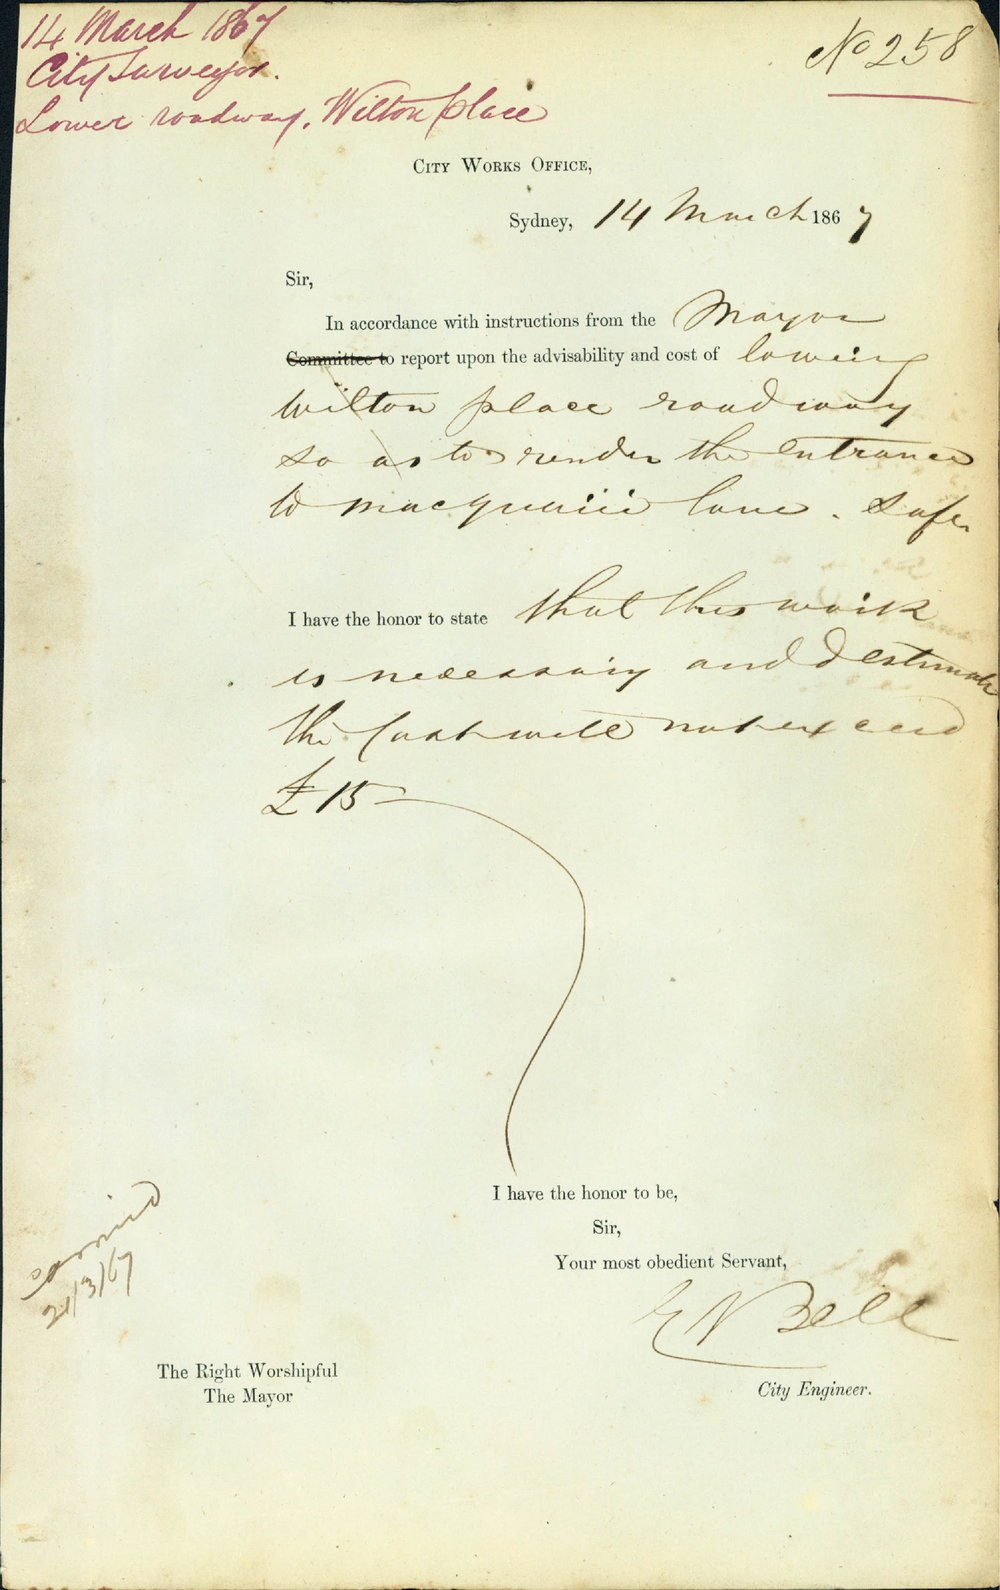 14 March 1867
City Surveyor.
Lower roadway, Wilton place
No 258
CITY WORKS OFFICE,
Sydney, 14 March 1867
Sir,
In accordance with instructions from the Mayor
Committee to report upon the advisability and cost of lowering
Wilton place roadway
so as to render the entrance
to Macquarie lane. safe
I have the honor to state that this work
is necessary and I estimate
the Cost will not exceed
£15
I have the honor to be,
Sir,
Your most obedient Servant,
E Bell
City Engineer.
Carried
21/3/67
The Right Worshipful
The Mayor